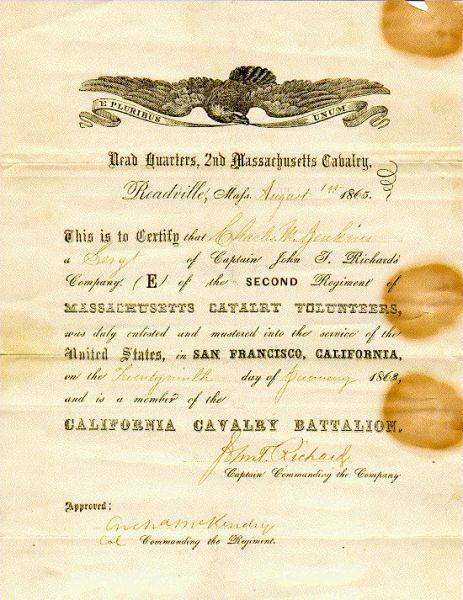 E PLURIBUS UNUM
Head Quarters, 2nd Massachusetts Cavalry,
Readville, Mass. August 1st 1865.
This is to Certify that Chas. W. Jenkins
a Sergt of Captain John T. Richards'
Company (E) of the SECOND Regiment of
MASSACHUSETTS CAVALRY VOLUNTEERS,
was duly enlisted and mustered into the service of the
United States, in SAN FRANCISCO, CALIFORNIA,
on the day of 1863,
and is a member of the
CALIFORNIA CAVALRY BATTALION.
John T. Richard
Captain Commanding the Company
Approved;
Col Commanding the Regiment.